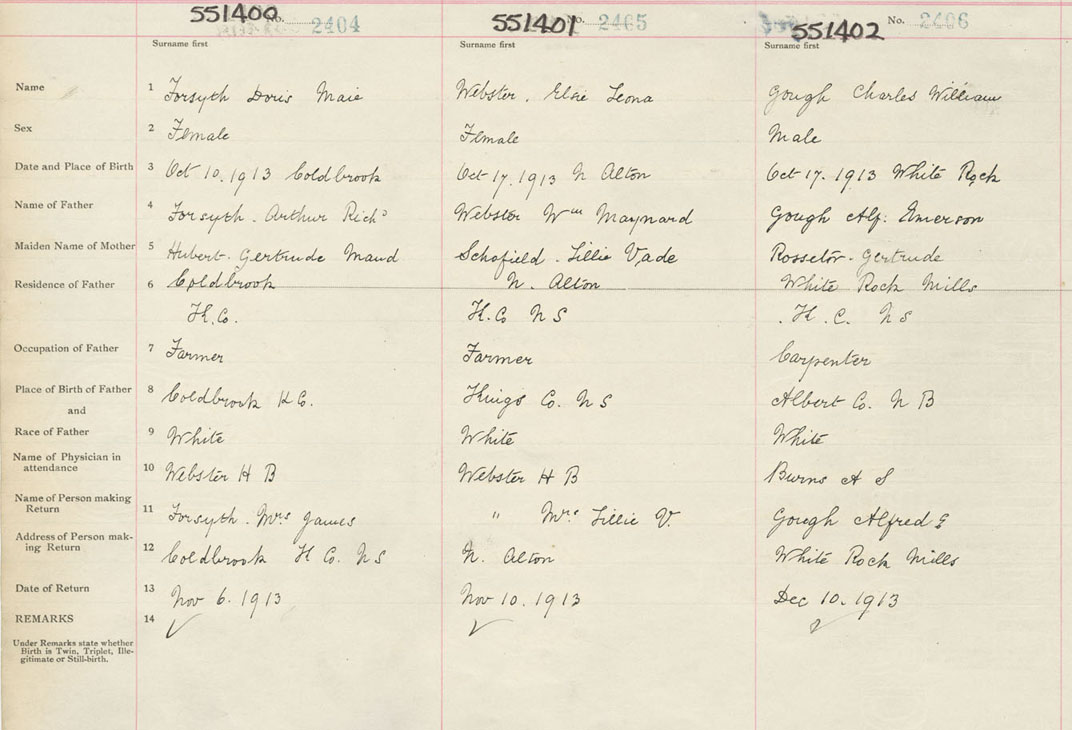 551400 No. 2404 551401 No. 2405 551402 No. 2406
Surname first Surname first Surname first
Name 1 Forsyth Doris Maie Webster, Elsie Leona Gough Charles William
Sex 2 Female Female Male
Date and Place of Birth 3 Oct 10, 1913 Coldbrook Oct 17, 1913 N Alton Oct 17. 1913 White Rock
Name of Father 4 Forsyth. Arthur Richd Webster Wm Maynard Gough Alf: Emerson
Maiden Name of Mother 5 Hubert. Gertrude Maud Schofield. Lillie Vade Rossetor. Gertrude
Residence of Father 6 Coldbrook N. Alton White Rock Mills
K.Co. K.Co N S K. C. N S
Occupation of Father 7 Farmer Farmer Carpenter
Place of Birth of Father 8 Coldbrook K Co. Kings Co. N S Albert Co. N B
and
Race of Father 9 White White White
Name of Physician in
attendance 10 Webster H B Webster H B Burns A S
Name of Person making
Return 11 Forsyth. Mrs James " Mrs Lillie V. Gough Alfred E
Address of Person mak-
ing Return 12 Coldbrook K Co. N S N. Alton White Rock Mills
Date of Return 13 Nov 6. 1913 Nov 10. 1913 Dec 10. 1913
REMARKS 14 ✓ ✓ ✓
Under Remarks state whether
Birth is Twin, Triplet, Ille-
gitimate or Still-birth.